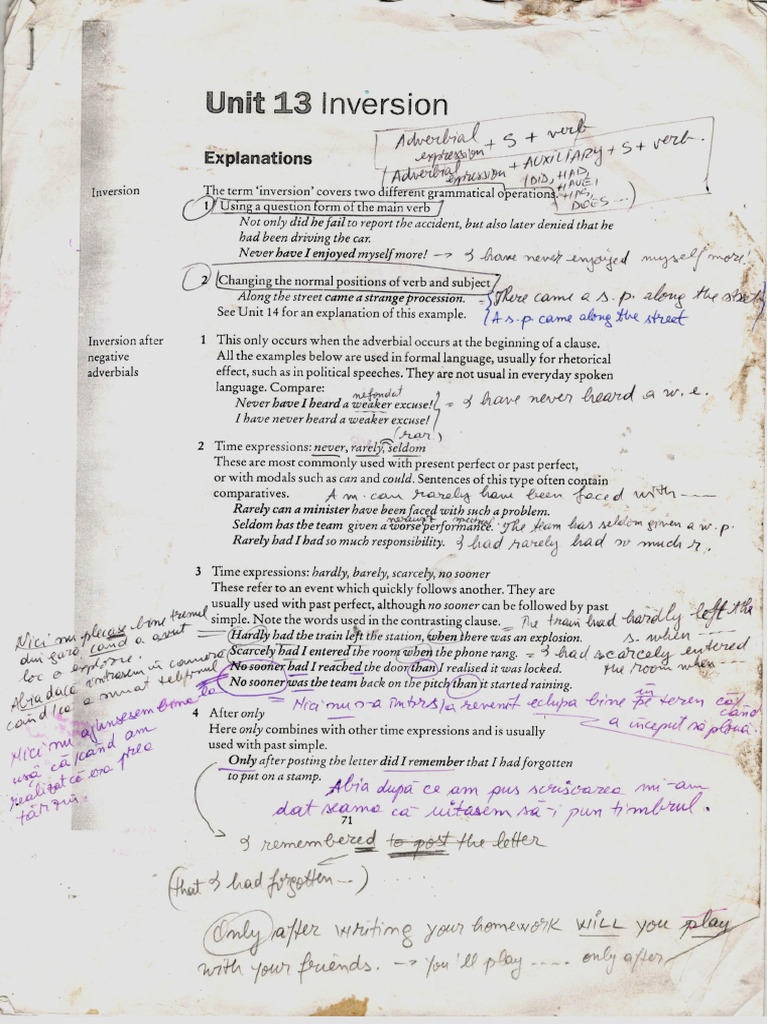 Unit 13 Inversion
Adverbial expression + S + verb
Adverbial expression + AUXILIARY + S + verb.
(DID, HAD, HAVE, HAS, DOES ...)
Explanations
Inversion
The term 'inversion' covers two different grammatical operations.
1 Using a question form of the main verb
Not only did he fail to report the accident, but also later denied that he
had been driving the car.
Never have I enjoyed myself more! → I have never enjoyed myself more!
2 Changing the normal positions of verb and subject
Along the street came a strange procession. = There came a s. p. along the street
A s.p. came along the street
See Unit 14 for an explanation of this example.
Inversion after
negative
adverbials
1 This only occurs when the adverbial occurs at the beginning of a clause.
All the examples below are used in formal language, usually for rhetorical
effect, such as in political speeches. They are not usual in everyday spoken
language. Compare:
nefondat
Never have I heard a weaker excuse! = I have never heard a w. e.
I have never heard a weaker excuse!
(rar)
2 Time expressions: never, rarely, seldom
These are most commonly used with present perfect or past perfect,
or with modals such as can and could. Sentences of this type often contain
comparatives. A m. can rarely have been faced with ----
Rarely can a minister have been faced with such a problem.
Seldom has the team given a worse performance. The team has seldom given a w. p.
Rarely had I had so much responsibility. I had rarely had so much r.
3 Time expressions: hardly, barely, scarcely, no sooner
These refer to an event which quickly follows another. They are
usually used with past perfect, although no sooner can be followed by past
simple. Note the words used in the contrasting clause. = The train had hardly left the
s. when ----
Hardly had the train left the station, when there was an explosion.
Scarcely had I entered the room when the phone rang. = I had scarcely entered
the room when ----
No sooner had I reached the door than I realised it was locked.
No sooner was the team back on the pitch than it started raining.
Nici nu plecase bine trenul
din gară, când a avut
loc o explozie.
Abia dacă intrasem în camera
când a sunat telefonul
Nici nu ajunsesem bine la
ușă că/când am
realizat că era
Nici nu s-a întors/a revenit echipa bine pe teren că/
când
a început să plouă.
4 After only
Here only combines with other time expressions and is usually
used with past simple.
Only after posting the letter did I remember that I had forgotten
to put on a stamp.
Abia după ce am pus scrisoarea mi-am
dat seama că uitasem să-i pun timbrul.
71
I remembered to post the letter
(that I had forgotten ---)
Only after writing your homework WILL you play
with your friends. → You'll play ..... only after